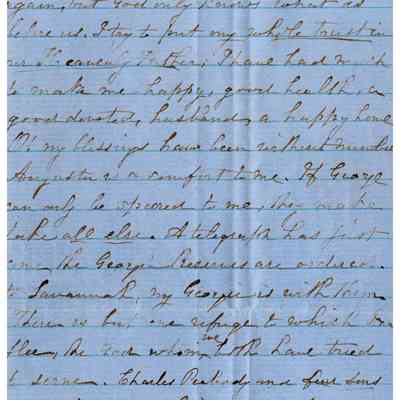 again, but God only knows what is
before us. I try to put my whole trust in
our Heavenly Father, I have had much
to make me happy, good health, a
good devoted, husband, a happy home
O! my blessings have been without number
Augusta is a comfort to me. If George
can only be spared to me, they make
take all else. A telegraph has just
come, the Georgia Reserves are ordered
to Savannah, my George is with them
There is but one refuge to which I can
flee, the God whom we both have tried
to serve. Charles Peabody and four sons